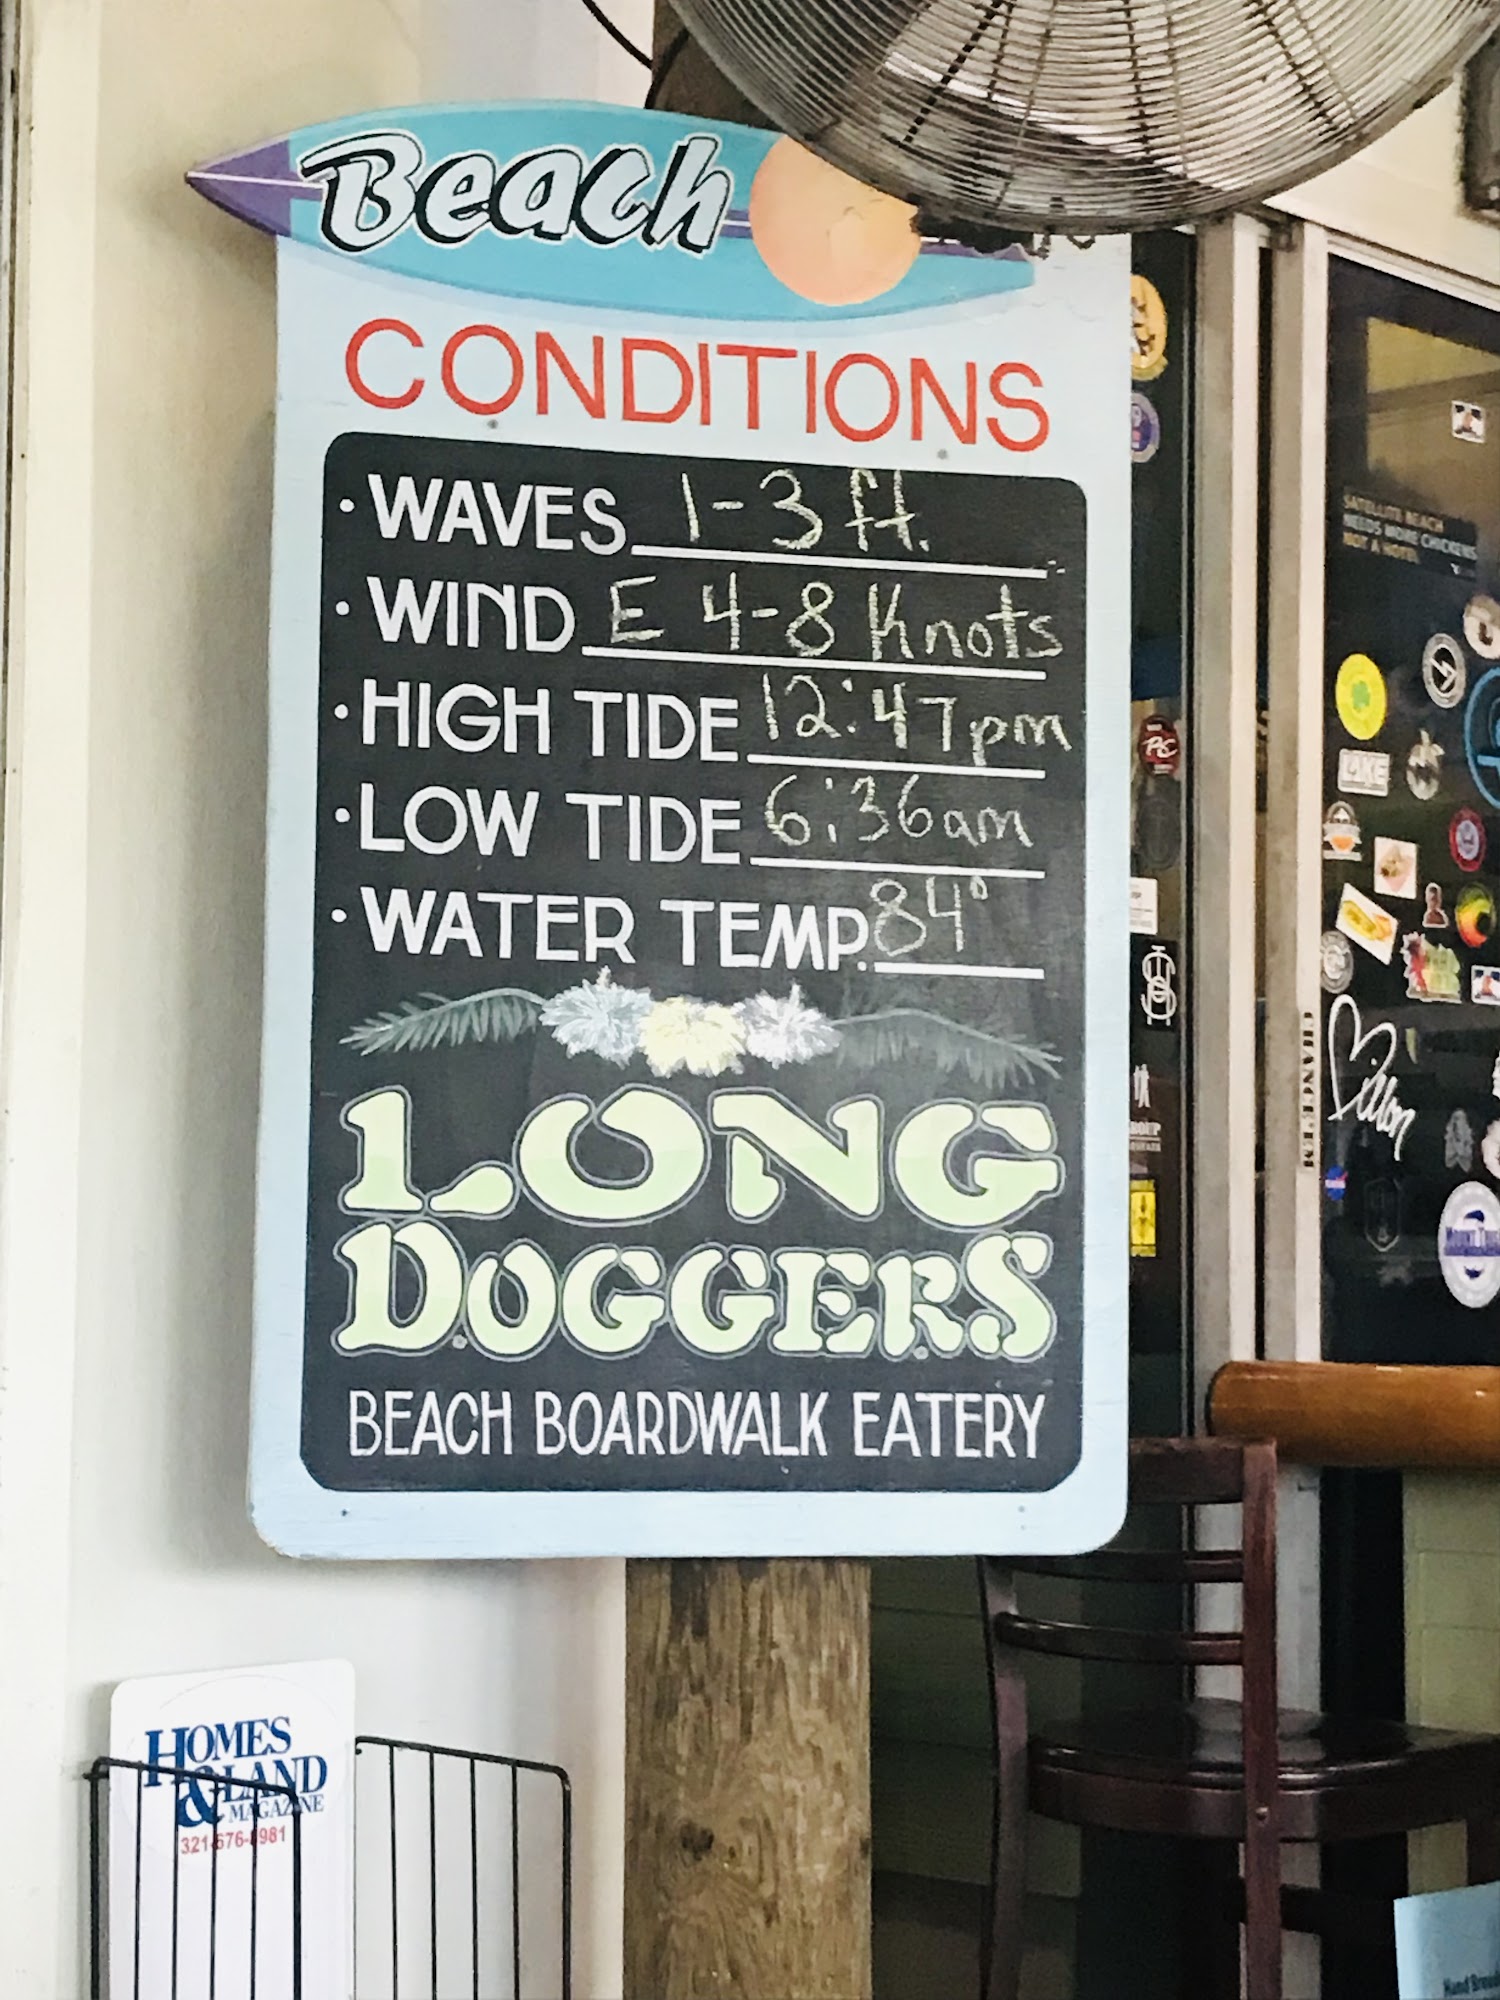 Beach
CONDITIONS
• WAVES 1-3 ft.
• WIND E 4-8 Knots
• HIGH TIDE 12:47pm
• LOW TIDE 6:36am
• WATER TEMP. 84°
LONG
DOGGERS
BEACH BOARDWALK EATERY
SATELLITE BEACH
NEEDS MORE CHICKENS
NOT A HOTEL
LAKE
HOMES
& LAND
MAGAZINE